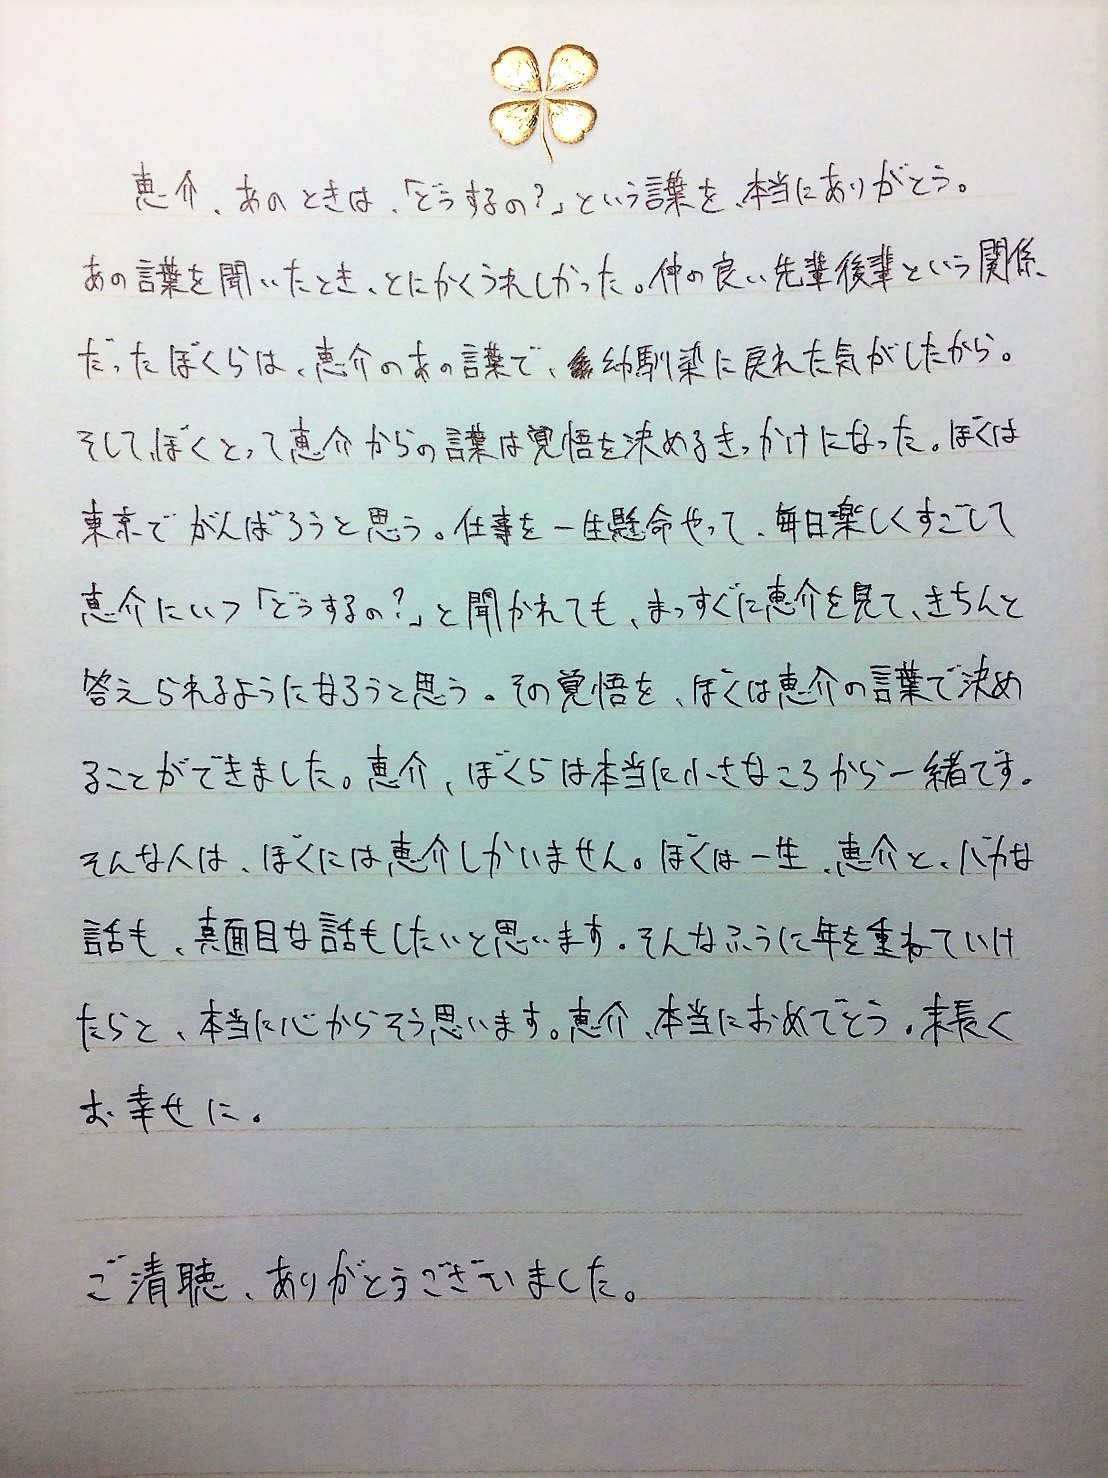 恵介、あのときは、「どうするの?」という言葉を、本当にありがとう。
あの言葉を聞いたとき、とにかくうれしかった。仲の良い先輩後輩という関係
だったぼくらは、恵介のあの言葉で、幼馴染に戻れた気がしたから。
そして、ぼくとって恵介からの言葉は覚悟を決めるきっかけになった。ぼくは
東京でがんばろうと思う。仕事を一生懸命やって、毎日楽しくすごして
恵介にいつ「どうするの?」と聞かれても、まっすぐに恵介を見て、きちんと
答えられるようになろうと思う。その覚悟を、ぼくは恵介の言葉で決め
ることができました。恵介、ぼくらは本当に小さなころから一緒です。
そんな人は、ぼくには恵介しかいません。ぼくは一生、恵介と、バカな
話も、真面目な話もしたいと思います。そんなふうに年を重ねていけ
たらと、本当に心からそう思います。恵介、本当におめでとう。末長く
お幸せに。
ご清聴、ありがとうございました。